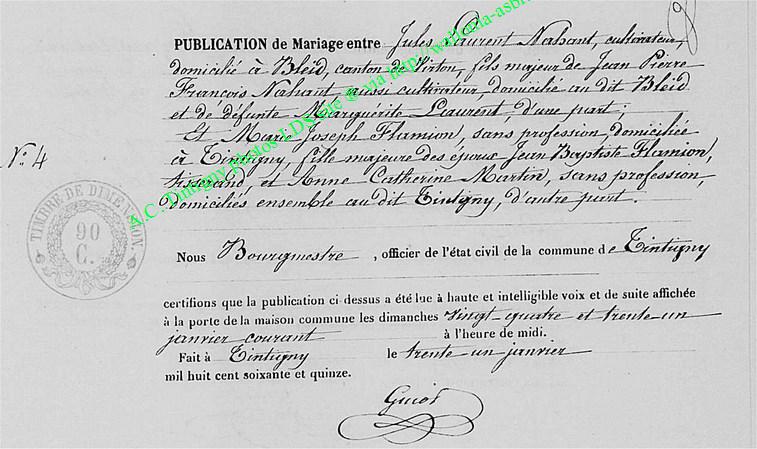 PUBLICATION de Mariage entre Jules Laurent Nahant, cultivateur,
domicilié à Bleid, canton de Virton, fils majeur de Jean Pierre
François Nahant, aussi cultivateur, domicilié au dit Bleid
et de défunte Marguérite Laurent, d'une part ;
Et Marie Joseph Flamion, sans profession domiciliée
N.° 4
à Tintigny, fille majeure des époux Jean Baptiste Flamion,
tisserand, et Anne Catherine Martin, sans profession,
domiciliés ensemble au dit Tintigny, d'autre part.
TIMBRE DE DIMENSION.
90
C.
Nous Bourgmestre, officier de l'état civil de la commune de Tintigny
certifions que la publication ci dessus a été lue à haute et intelligible voix et de suite affichée
à la porte de la maison commune les dimanches vingt-quatre et trente un
janvier courant à l'heure de midi.
Fait à Tintigny le trente un janvier
mil huit cent soixante et quinze.
A.C. Tintigny photos LDS site @ via http://wallonia-asbl